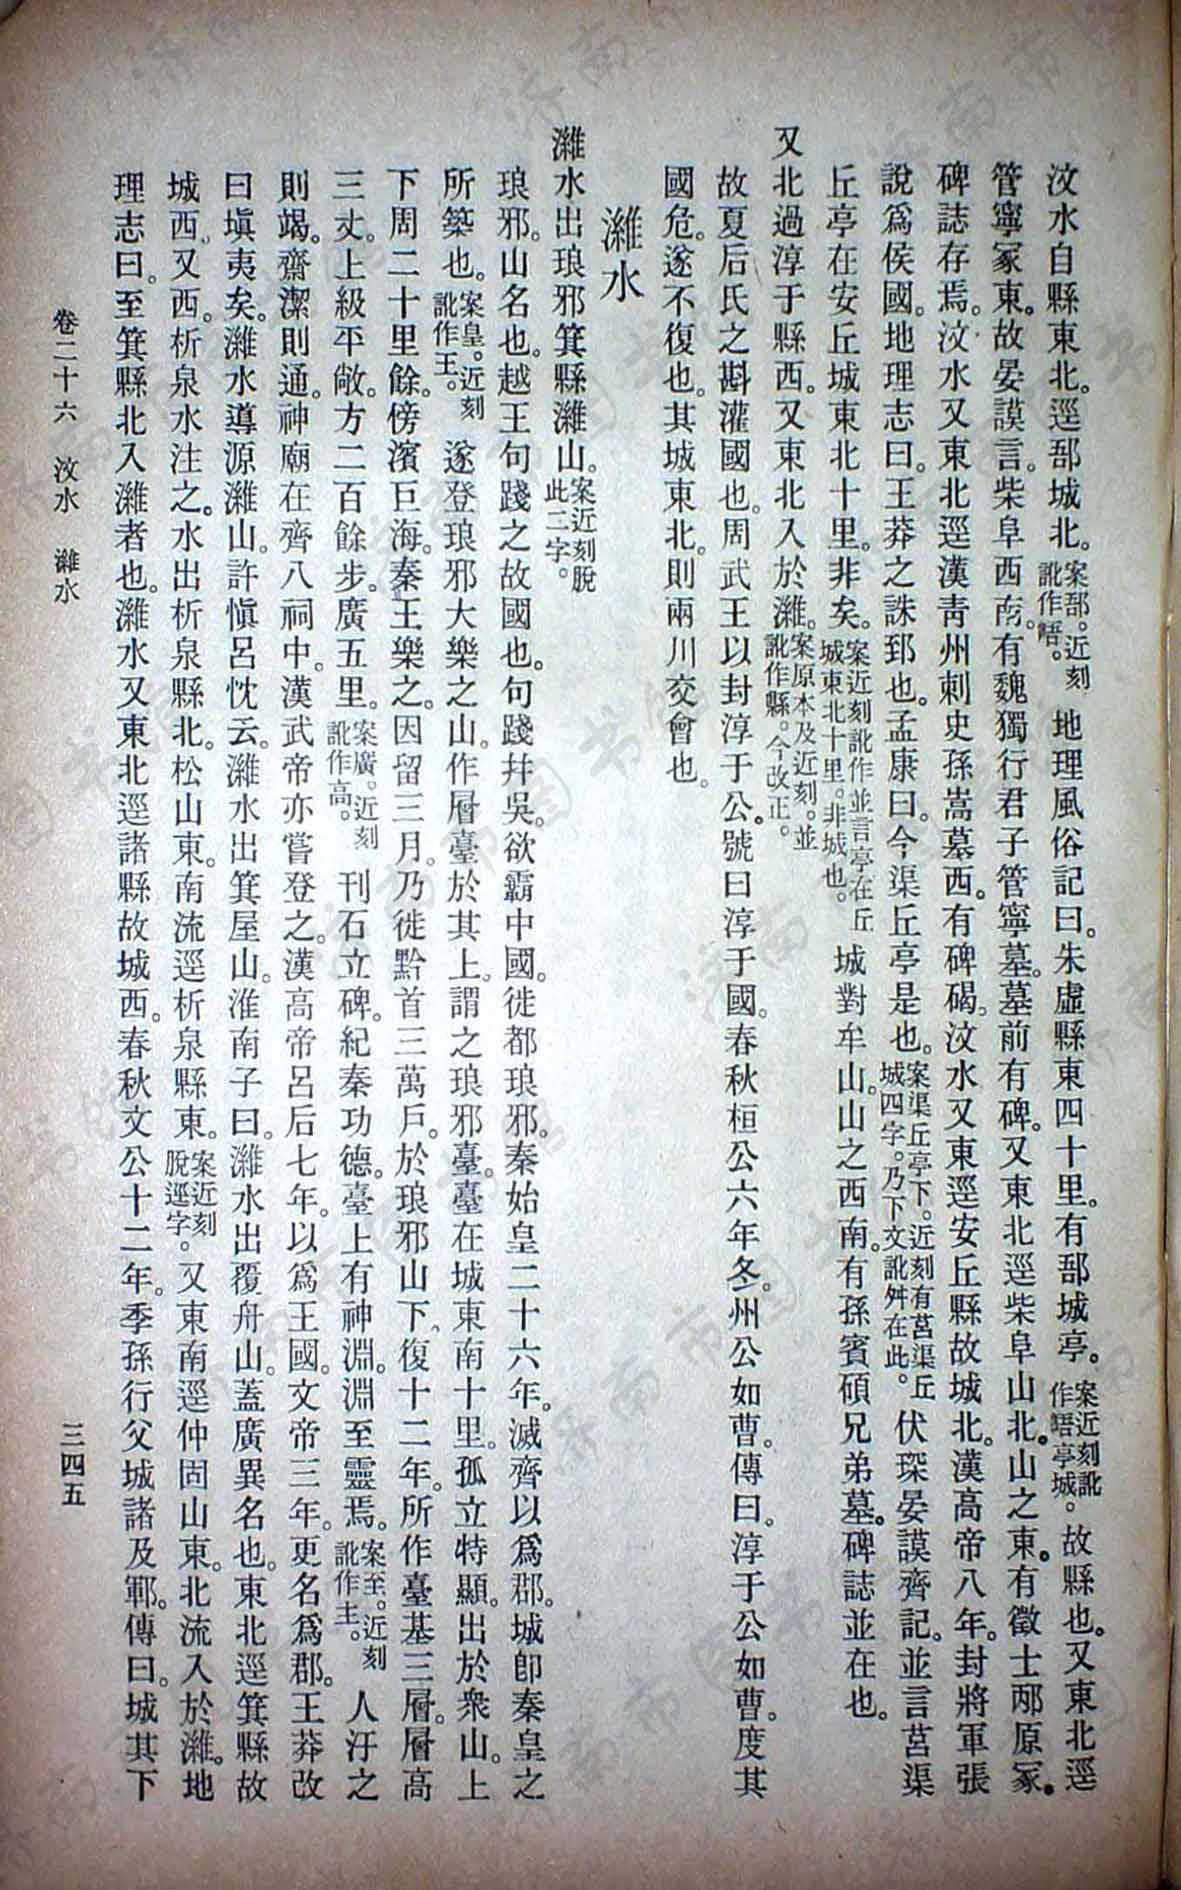 汶水自縣東北。逕郚城北。案郚。近刻訛作晤。地理風俗記曰。朱虛縣東四十里。有郚城亭。案近刻訛作晤亭城。故縣也。又東北逕
管寧冢東。故晏謨言。柴阜西南。有魏獨行君子管寧墓。墓前有碑。又東北逕柴阜山北。山之東。有徵士邴原冢。
碑誌存焉。汶水又東北逕漢青州刺史孫嵩墓西。有碑碣。汶水又東逕安丘縣故城北。漢高帝八年。封將軍張
說爲侯國。地理志曰。王莽之誅郅也。孟康曰。今渠丘亭是也。案渠丘亭下。近刻有莒渠丘城四字。乃下文訛舛在此。伏琛晏謨齊記。並言莒渠
丘亭在安丘城東北十里。非矣。案近刻訛作並言亭在丘城東北十里。非城也。城對牟山。山之西南。有孫賓碩兄弟墓。碑誌並在也。
又北過淳于縣西。又東北入於濰。案原本及近刻。並訛作縣。今改正。
故夏后氏之斟灌國也。周武王以封淳于公。號曰淳于國。春秋桓公六年冬。州公如曹。傳曰。淳于公如曹。度其
國危。遂不復也。其城東北。則兩川交會也。
濰水
濰水出琅邪箕縣濰山。案近刻脫此二字。
琅邪。山名也。越王句踐之故國也。句踐幷吳。欲霸中國。徙都琅邪。秦始皇二十六年。滅齊以爲郡。城卽秦皇之
所築也。案皇。近刻訛作王。遂登琅邪大樂之山。作層臺於其上。謂之琅邪臺。臺在城東南十里。孤立特顯。出於衆山。上
下周二十里餘。傍濱巨海。秦王樂之。因留三月。乃徙黔首三萬戶。於琅邪山下。復十二年。所作臺基三層。層高
三丈。上級平敞。方二百餘步。廣五里。案廣。近刻訛作高。刊石立碑。紀秦功德。臺上有神淵。淵至靈焉。案至。近刻訛作主。人汙之
則竭。齋潔則通。神廟在齊八祠中。漢武帝亦嘗登之。漢高帝呂后七年。以爲王國。文帝三年。更名爲郡。王莽改
曰塡夷矣。濰水導源濰山。許愼呂忱云。濰水出箕屋山。淮南子曰。濰水出覆舟山。蓋廣異名也。東北逕箕縣故
城西。又西。析泉水注之。水出析泉縣北。松山東。南流逕析泉縣東。案近刻脫逕字。又東南逕仲固山東。北流入於濰。地
理志曰。至箕縣北入濰者也。濰水又東北逕諸縣故城西。春秋文公十二年。季孫行父城諸及鄆。傳曰。城其下
卷二十六 汶水 濰水
三四五